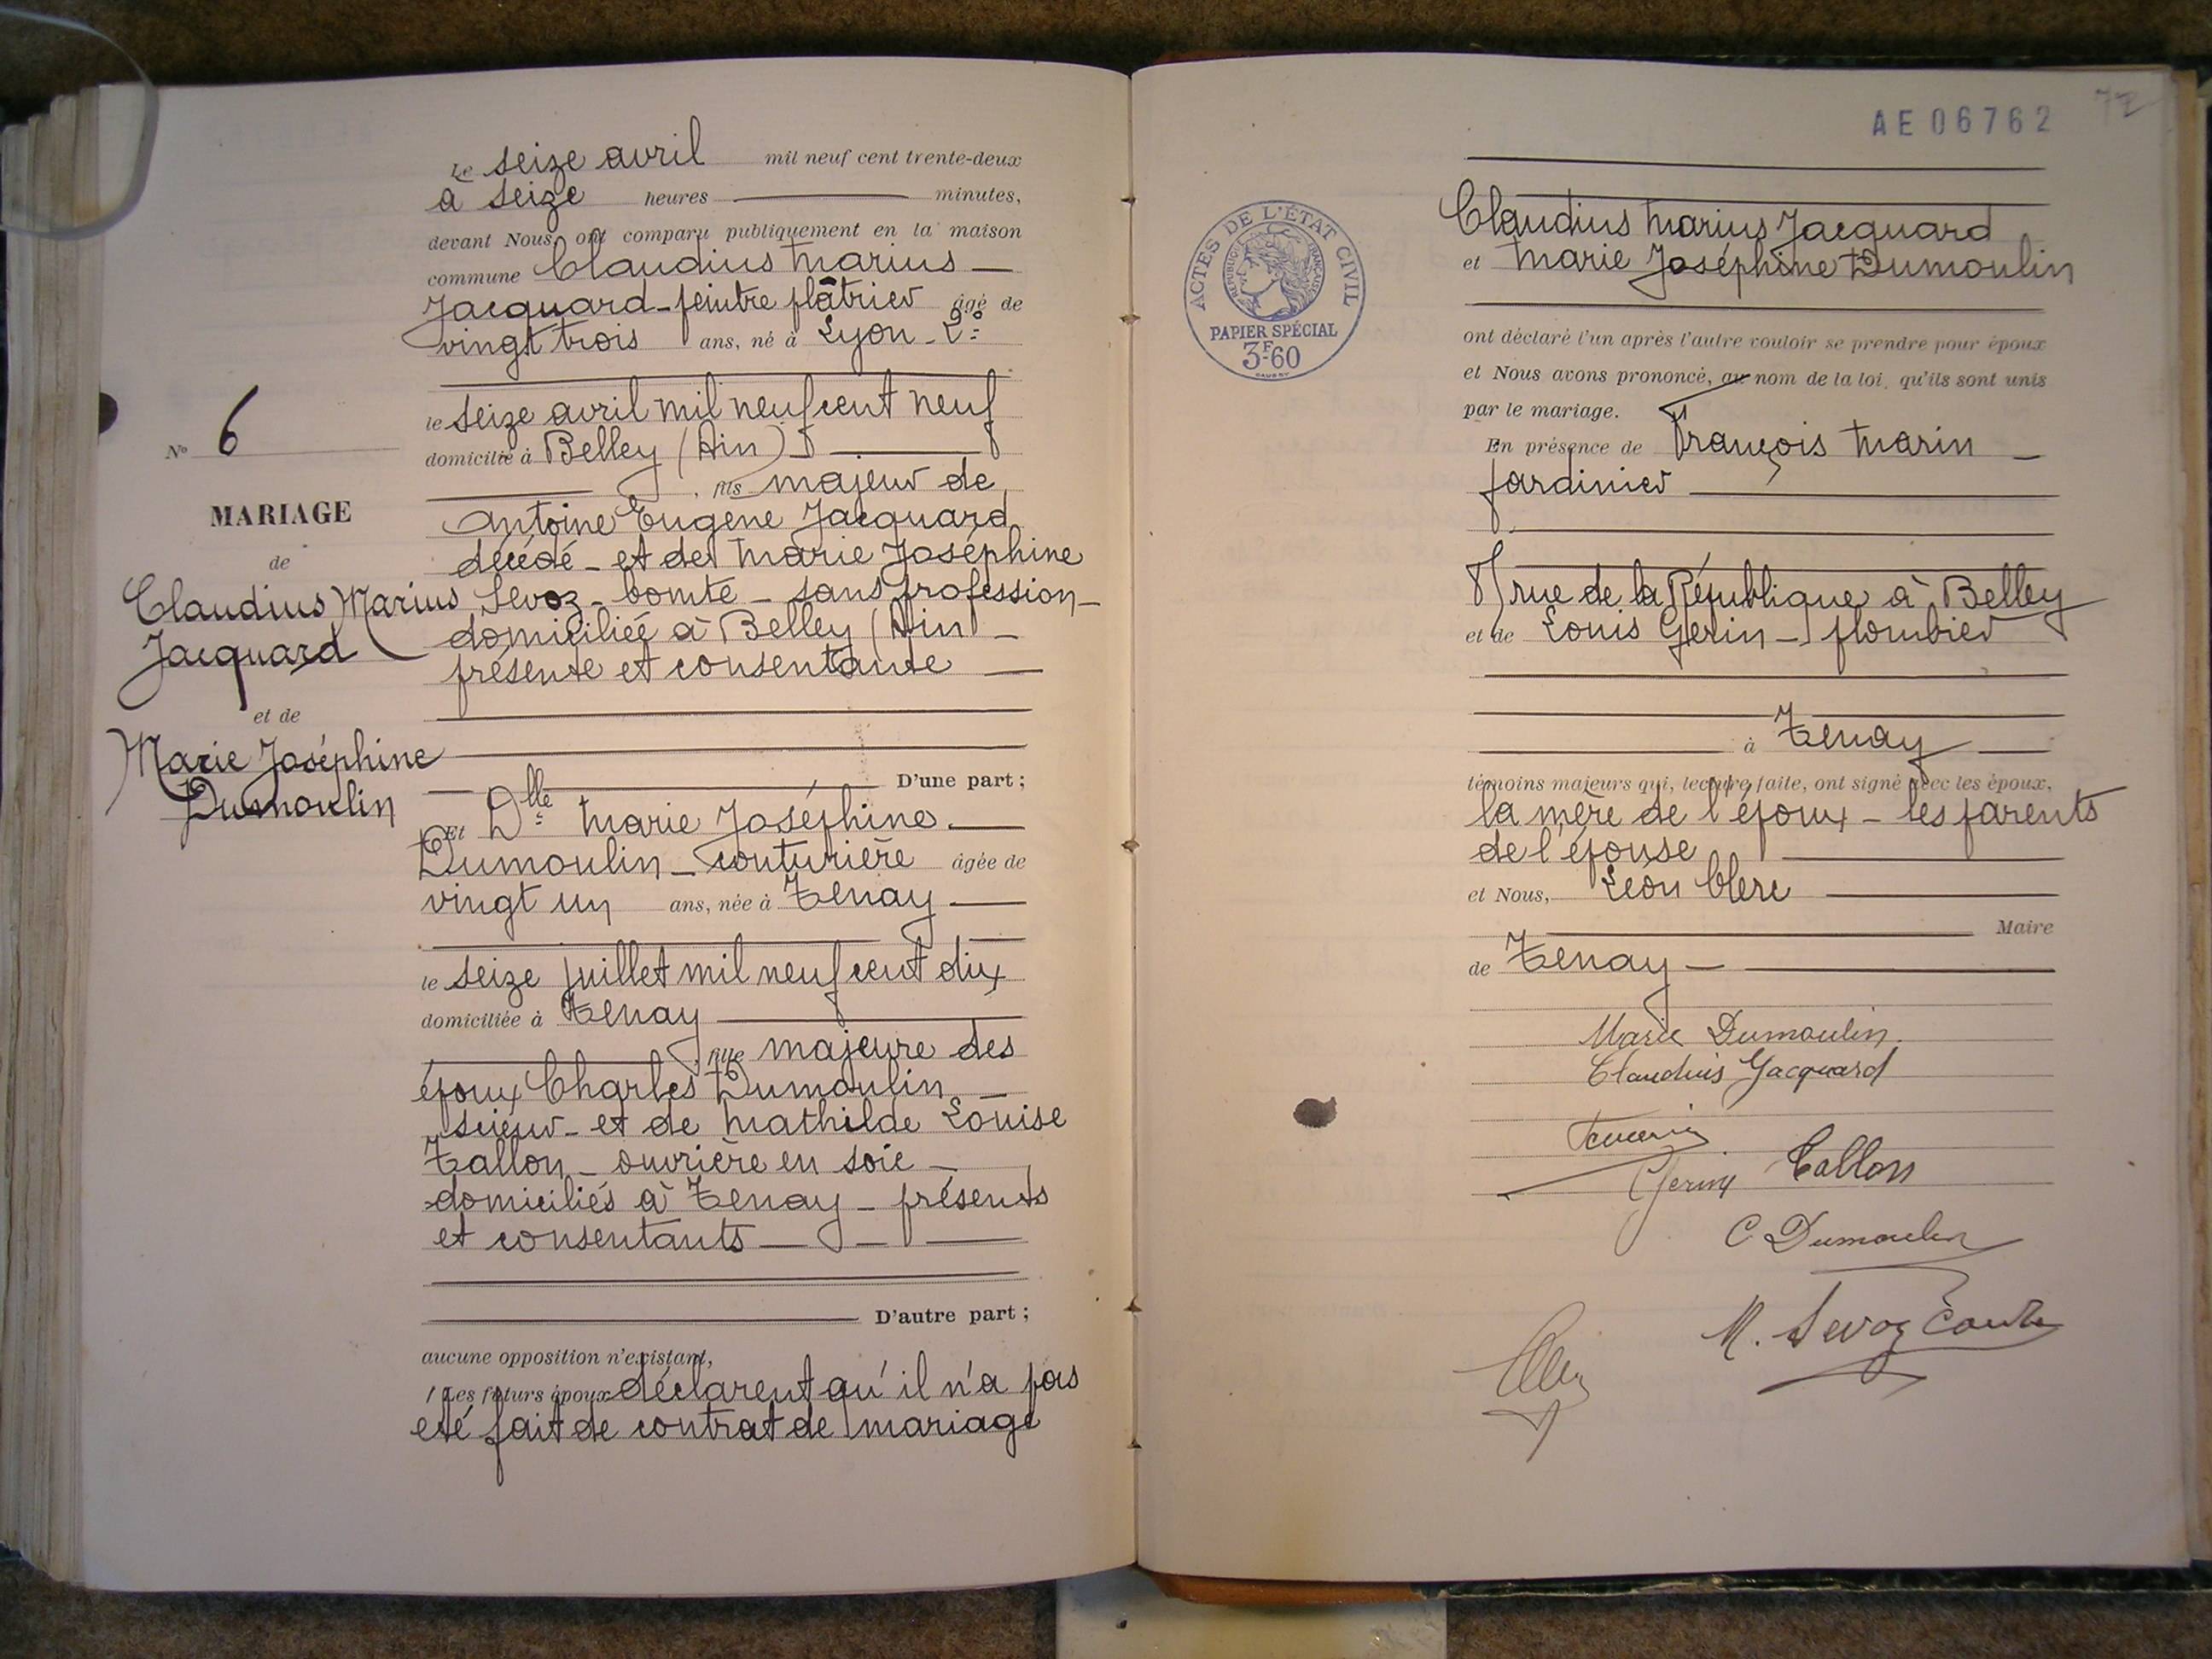 Le seize avril mil neuf cent trente-deux
à seize heures minutes,
devant Nous, ont comparu publiquement en la maison
commune Claudius Marius
Jacquard - peintre plâtrier âgé de
vingt trois ans, né à Lyon - 2º
le seize avril mil neuf cent neuf
domicilié à Belley (Ain)
fils majeur de
Antoine Eugène Jacquard
décédé - et de Marie Joséphine
Sevoz - Comte - sans profession -
domiciliée à Belley (Ain) -
présente et consentante
D'une part ;
Et Dlle Marie Joséphine
Dumoulin - couturière âgée de
vingt un ans, née à Tenay
le seize juillet mil neuf cent dix
domiciliée à Tenay
fille majeure des
époux Charles Dumoulin
scieur - et de Mathilde Louise
Tallon - ouvrière en soie -
domiciliés à Tenay - présents
et consentants
D'autre part ;
aucune opposition n'existant,
Les futurs époux déclarent qu'il n'a pas
été fait de contrat de mariage
Nº 6
MARIAGE
de
Claudius Marius
Jacquard
et de
Marie Joséphine
Dumoulin
AE06762
72
ACTES DE L'ÉTAT CIVIL
RÉPUBLIQUE FRANÇAISE
PAPIER SPÉCIAL
3F.60
Claudius Marius Jacquard
et Marie Joséphine Dumoulin
ont déclaré l'un après l'autre vouloir se prendre pour époux
et Nous avons prononcé, au nom de la loi, qu'ils sont unis
par le mariage.
En présence de François Marin
jardinier
rue de la République à Belley
et de Louis Gerin - plombier
à Tenay
témoins majeurs qui, lecture faite, ont signé avec les époux,
la mère de l'époux - les parents
de l'épouse
et Nous, Léon Clerc
Maire
de Tenay
Marie Dumoulin
Claudius Jacquard
Gerin Tallon
C. Dumoulin
M. Sevoz Comte